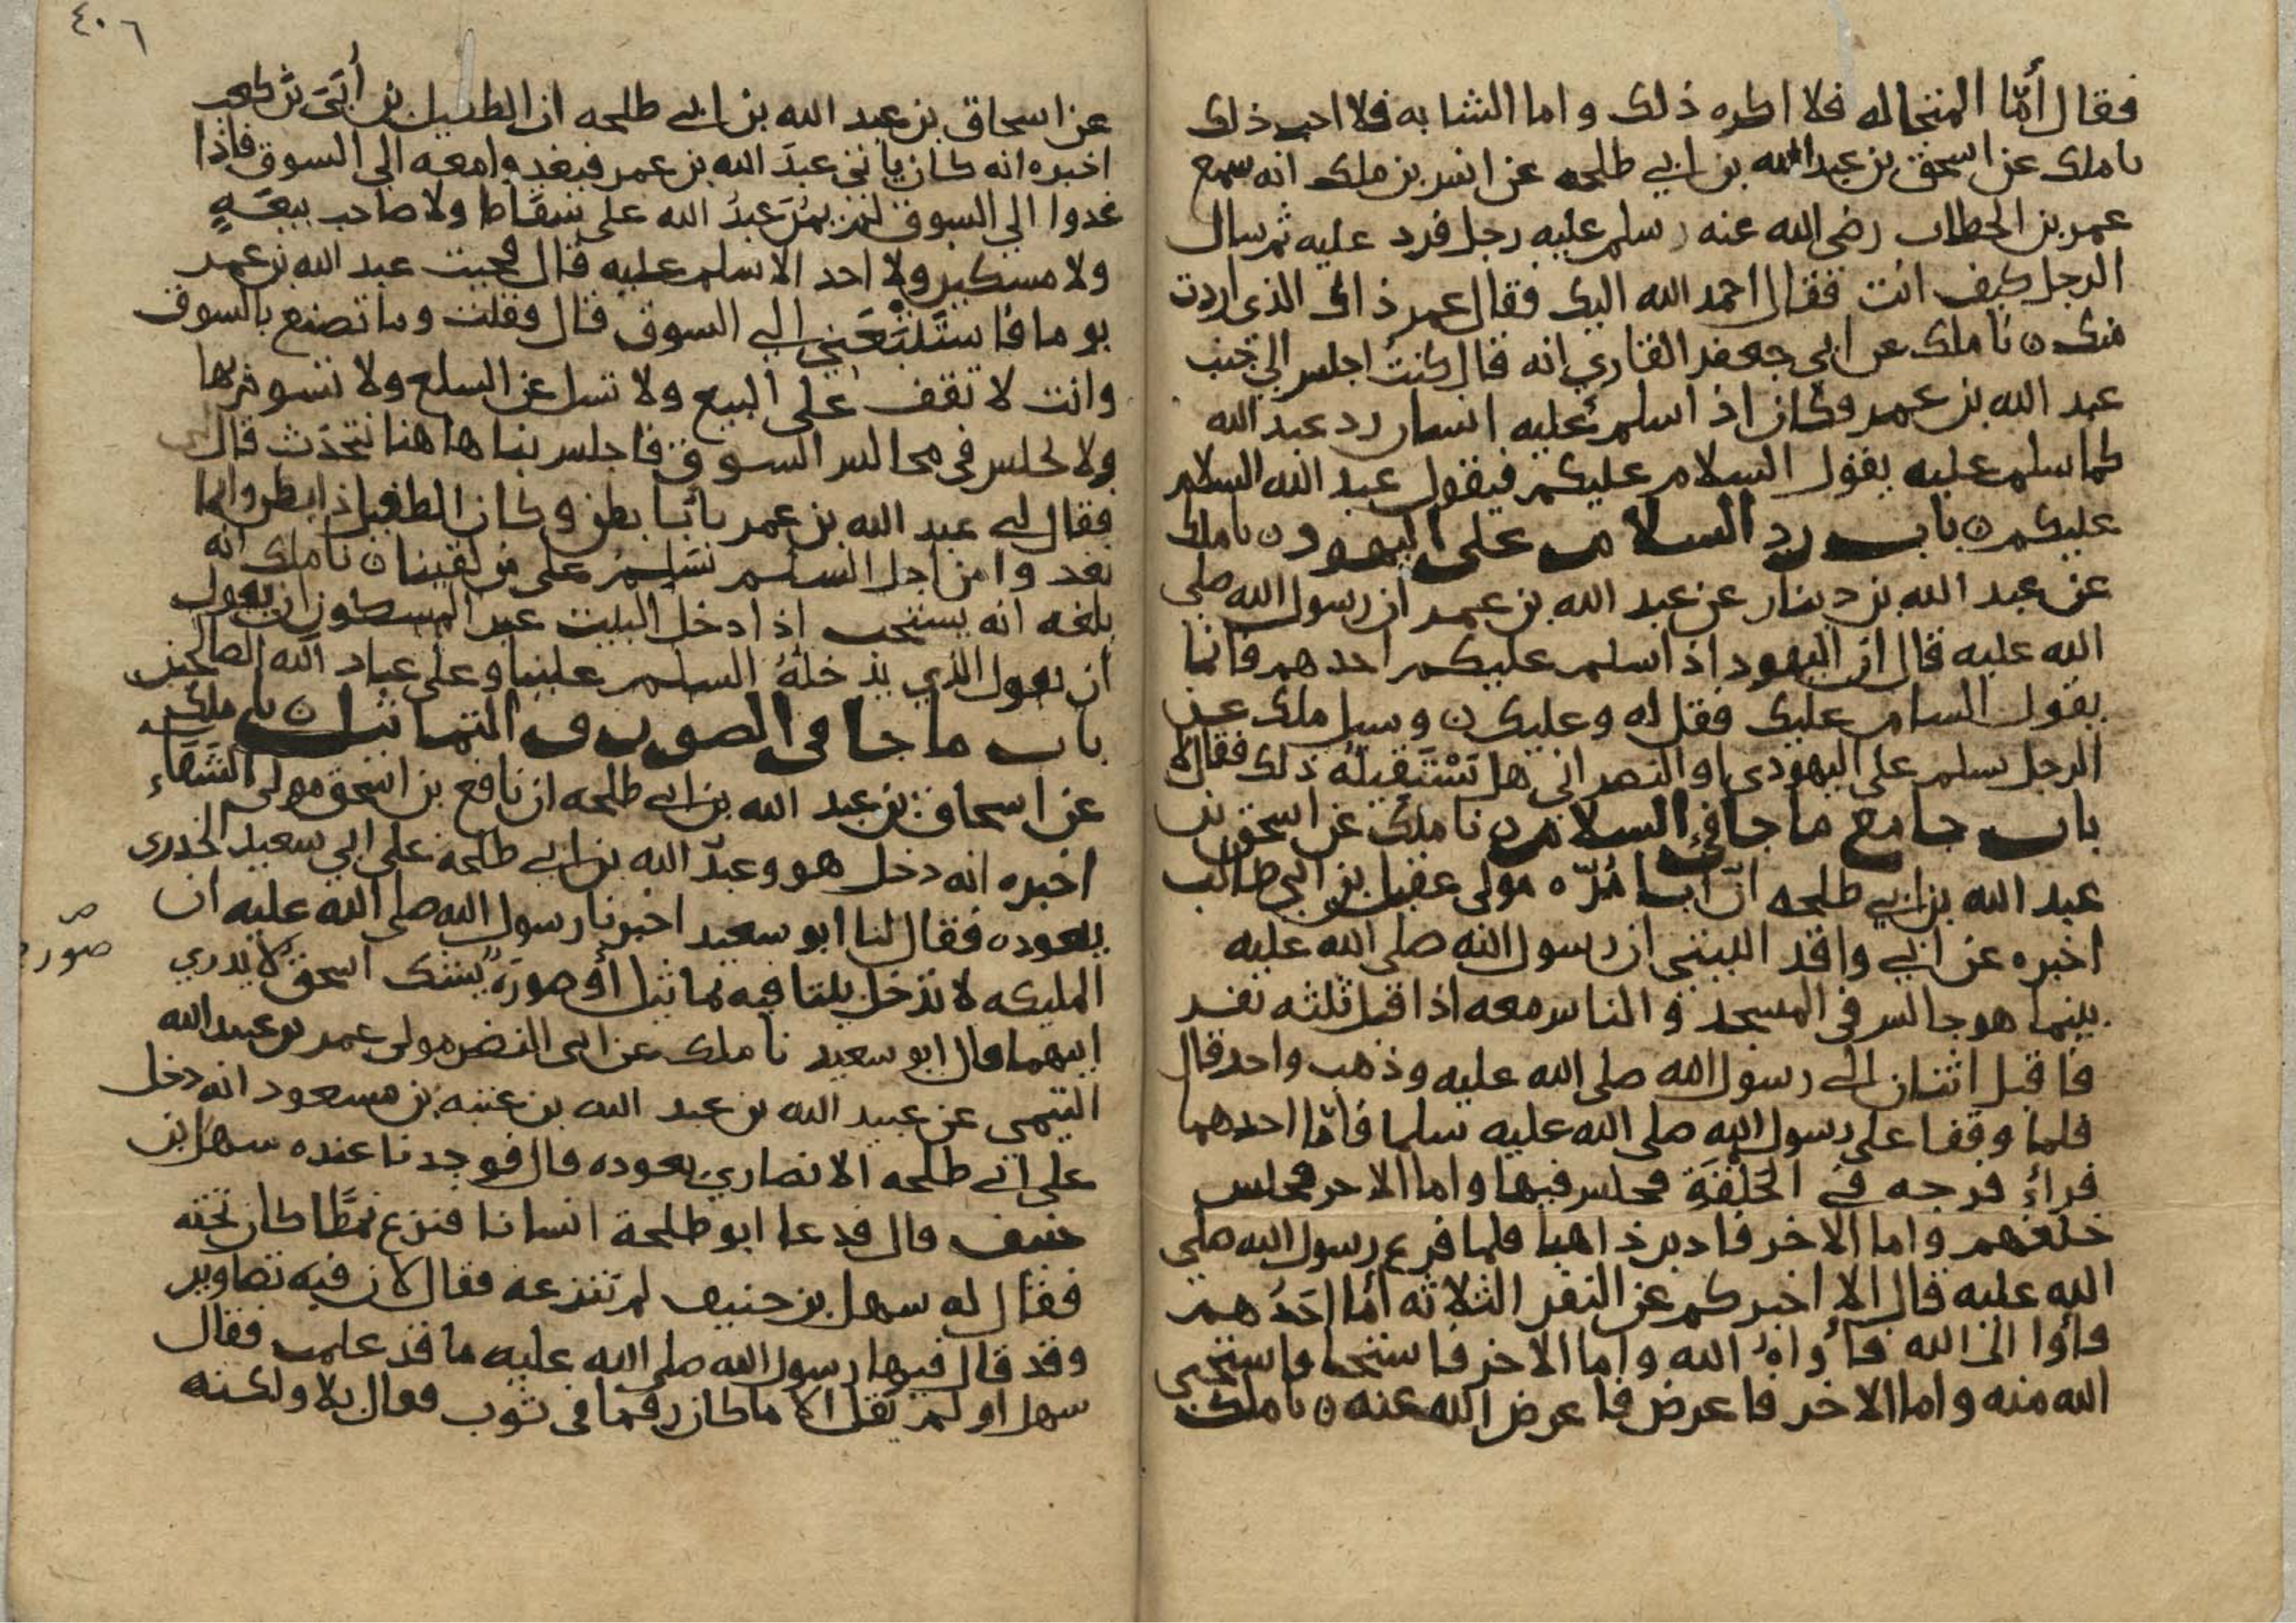 فقال أمّا المتجاله فلا اكره ذلك واما الشابه فلا احب ذلك
نا ملك عن اسحق بن عبد الله بن ابي طلحه عن انس بن ملك انه سمع
عمر بن الخطاب رضي الله عنه وسلم عليه رجل فرد عليه ثم سال
الرجل كيف انت فقال احمد الله اليك فقال عمر ذاك الذي اردت
منك ه نا ملك عن ابي جعفر القاري انه قال كنتُ اجلس الي جنب
عبد الله بن عمر وكان اذ اسلم عليه انسان رد عبد الله
كما سلم عليه يقول السلام عليكم فيقول عبد الله السلام
عليكم ه باب رد السلام على اليهود ه نا ملك
عن عبد الله بن دينار عن عبد الله بن عمر ان رسول الله صلي
الله عليه قال ان اليهود اذا سلم عليكم احدهم فانما
يقول السام عليك فقل له وعليك ه وسيل ملك عن
الرجل سلم على اليهودي او النصراني هل تستقيله ذلك فقال لا
باب جامع ما جا في السلام ه نا ملك عن اسحق بن
عبد الله بن ابي طلحه انّ ابا مُرّه مولى عقيل بن ابي طالب
اخبره عن ابي واقد الليثي ان رسول الله صلى الله عليه
بينما هو جالس في المسجد و الناس معه اذا قبل ثلثه نفر
فاقبل اثنان الى رسول الله صلى الله عليه وذهب واحد قال
فلما وقفا على رسول الله صلى الله عليه سلما فامّا احدهما
فراءَ فرجه في الحَلْقَة فجلس فيها واما الاخر فجلس
خلفهم واما الاخر فادبر ذاهبا فلما فرغ رسول الله صلي
الله عليه قال الا اخبركم عن النفر الثلاثه أما احَدُهم
فأوا الى الله فأواهُ الله واما الاخر فاستحيا فاستحيي
الله منه واما الاخر فاعرض فاعرض الله عنه ه نا ملك
٤٠٦
عن اسحاق بن عبد الله بن ابي طلحه ان الطفيل بن أُبَيّ بن كعب
اخبره انه كان ياتي عبدَ الله بن عمر فيغدوا معه الى السوق فاذا
غدوا الي السوق لم يمُرَّ عبدُ الله على سَقّاط ولا صاحب بيعَةٍ
ولا مسكين ولا احد الا سلم عليه قال فجيت عبد الله بن عمر
يوما فاستَتْبَعَني الي السوق قال فقلت وما تصنع بالسوق
وانت لا تقف على البيع ولا تسل عن السلع ولا تسوم بها
ولا تجلس في مجالس السوق فاجلس بنا هاهنا نتحدّث قال
فقال لي عبد الله بن عمر يأبا بطن وكان الطفيل ذا بطن وانما
نغدوا من اجل السلم نسَلِمُ على من لقينا ه نا ملك انه
بلغه انه يستحب اذا دخل البيت غير المسكون ان يقول
ان يقول الذي يدخلهُ السلم علينا وعلى عباد الله الصالحين
باب ما جا في الصور و التماثيل ه نا ملك
عن اسحاق بن عبد الله بن ابي طلحه ان نافع بن اسحق مولى الشفاء
اخبره انه دخل هو وعبد الله بن ابي طلحة على ابي سعيد الخدري
يعوده فقال لنا ابو سعيد اخبرنا رسول الله صلى الله عليه ان
المليكه لا تدخل بيتا فيه تماثيل أو صورَةٌ يشك اسحق لا يدري
ايهما قال ابو سعيد نا ملك عن ابي النضر مولى عمر بن عبيد الله
التيمي عن عبيد الله بن عبد الله بن عتبه بن مسعود انه دخل
على ابي طلحه الانصاري يعوده قال فوجدنا عنده سهل بن
حنيف قال فدعا ابو طلحة انسانا فنزع نمَطًا كان تحته
فقال له سهل بن حنيف لم تنزعه فقال لان فيه تصاوير
وقد قال فيها رسول الله صلى الله عليه ما قد علمت فقال
سهل او لم يقل الا ما كان رقما في ثوب فقال بلا ولكنه